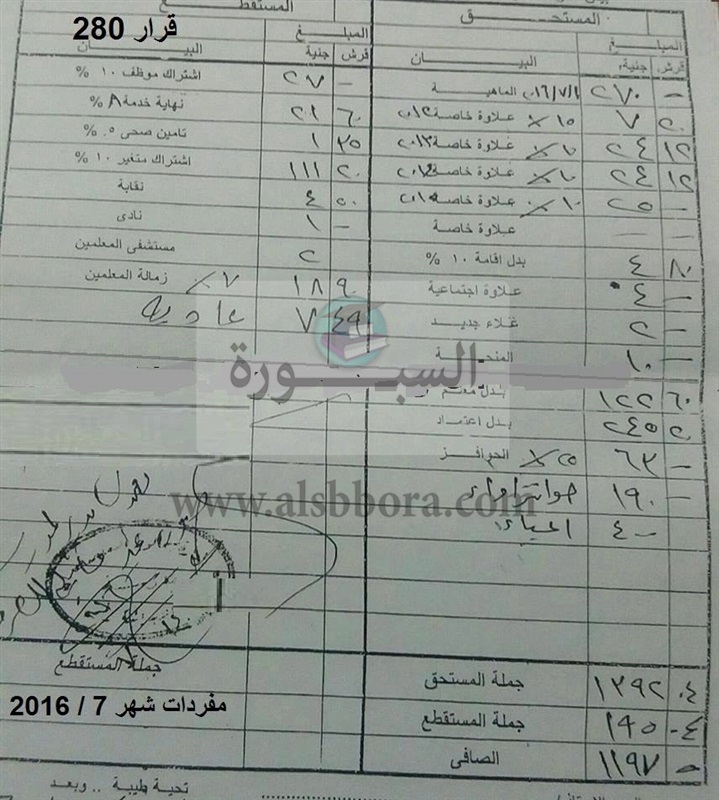 قرار 280
المستحق
المستقطع
المبلغ
قرش جنية
البيان
المبلغ
قرش جنية
البيان
- ٢٧٠ الماهية ٢٠١٦/٧/١
٢٠ ٧ علاوة خاصة ٢٠١٢ ١٥ ٪
١٢ ٢٤ علاوة خاصة ٢٠١٣ ١٠ ٪
١٢ ٢٤ علاوة خاصة ٢٠١٤ ١٠ ٪
- ٢٥ علاوة خاصة ٢٠١٥ ١٠ ٪
- - علاوة خاصة
٨٠ ٤ بدل اقامة ١٠ %
- ٤ علاوة اجتماعية
- ٢ غلاء جديد
- ١٠ المنحة
٦٠ ١٢٢ بدل معلم
٢٠ ٢٤٥ بدل اعتماد
- ٦٣ الحوافز ٢٥ ٪
- ١٩٠ حوافز اداء
- ٤٠٠ اعباء
- ٢٧ اشتراك موظف ١٠ %
٦٠ ٢١ نهاية خدمة ٨ %
٣٥ ١ تامين صحى ٠.٥ %
٢٠ ١١١ اشتراك متغير ١٠ %
٥٠ ٤ نقابة
- ١ نادى
٢ مستشفى المعلمين
٩٠ ١٨ زمالة المعلمين ٧ ٪
٤٩ ٧ عادية
السبورة
www.alsbbora.com
جملة المستقطع
مفردات شهر 7 / 2016
٠٤ ١٣٩٢ جملة المستحق
٠٤ ١٩٥ جملة المستقطع
٠ ١١٩٧ الصافى
تحية طيبة .. وبعد